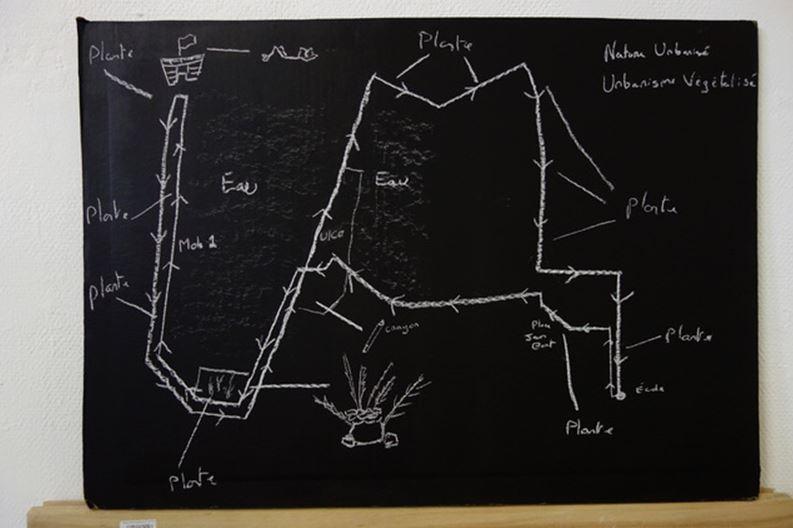 Plante
Plante
Nature Urbanisé
Urbanisme Végétalisé
Eau
Eau
Plante
Plante
ULCO
Mole 1
Plante
Canyon
Place
Jean
Bart
Plante
École
Plante
Plante